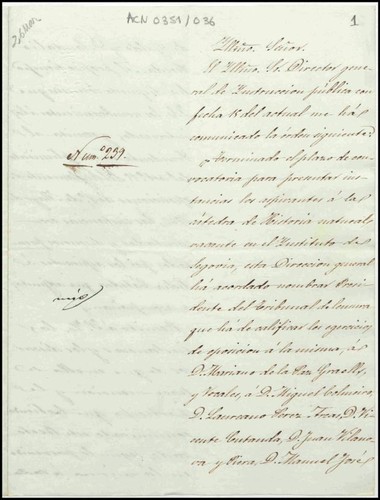 ACN 0351/036
1
Illmo. Señor.
El Illmo. Sr. Director gene-
ral de Instruccion pública con
fecha 15 del actual me há
comunicado la órden siguiente:
"Terminado el plazo de con-
vocatoria para presentar ins-
tancias los aspirantes á la
cátedra de Historia natural,
vacante en el Instituto de
Segovia, esta Direccion general
há acordado nombrar Presi-
dente del Tribunal de censura
que há de calificar los ejercicios
de oposicion á la misma, á
D. Mariano de la Paz Graells,
y Vocales, á D. Miguel Colmeiro,
D. Laureano Perez Arcas, D. Vi-
cente Cutanda, D. Juan Vilano-
va y Piera, D. Manuel José
Num.º 239.